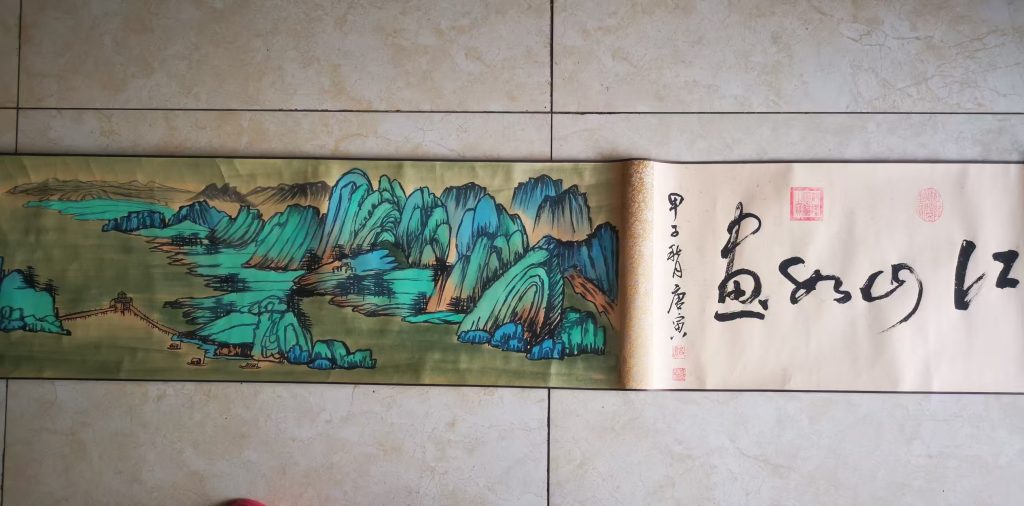 江山如画
甲子秋月唐寅